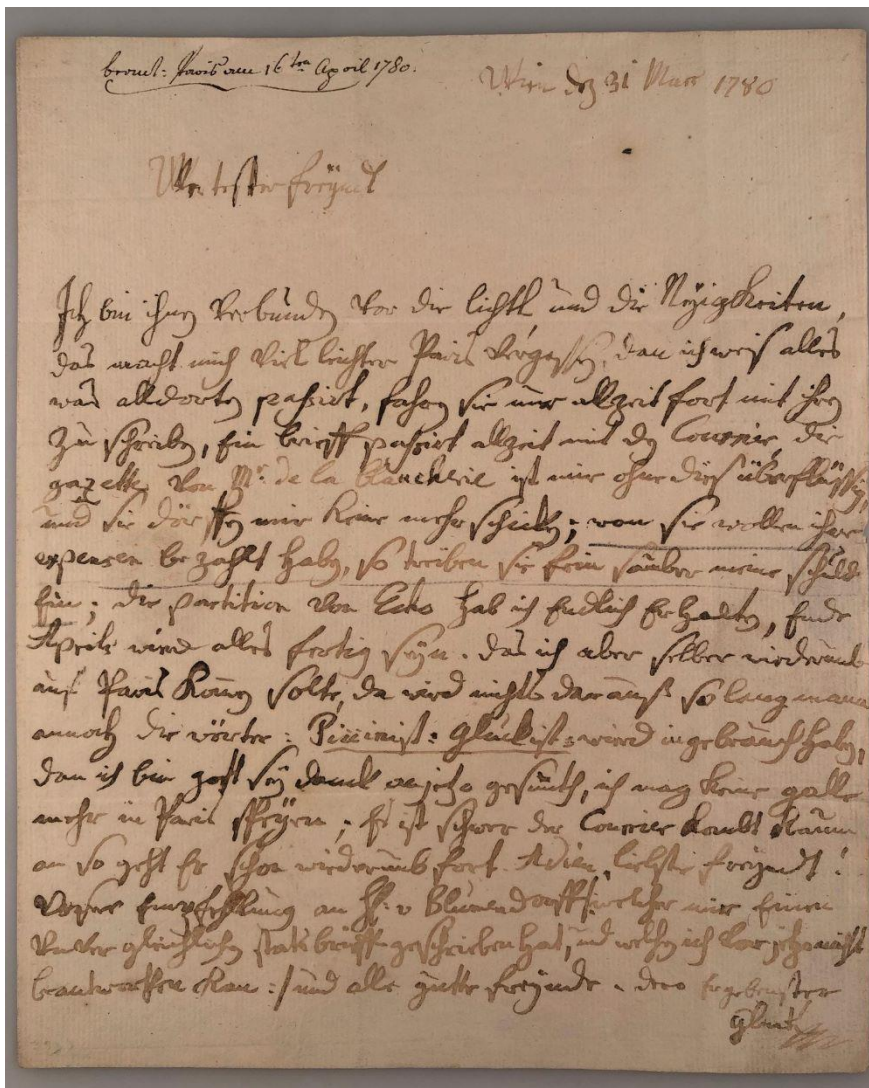 beantw: Paris am 16ten April 1780.
Wien den 31 Mars 1780
Wertester freyndt
Ich bin ihnen verbunden vor die lichtl und die Neyigkeiten,
das macht mich viel leichter Paris vergessen, dan ich weis alles
was alldorten passirt, fahren sie nur allzeit fort mit ihren
Zu schreiben, Ein brieff passirt allzeit mit den Courrier, die
gazette von Mr: de la blancherie ist mir ohne dies überflüssig,
und sie dörffen mir keine mehr schicken; wan sie wollen ihre
expensen bezahlt haben, so treiben sie fein sauber meine schuld
Ein; die partition von Echo hab ich Endlich Erhalten, Ende
Aprils wird alles fertig seyn. das ich aber selber wiederumb
auf Paris komen solte, da wird nichts darauß so lang mann
annoch die wörter: Piccinist: Gluckist: wird ingebrauch haben,
dan ich bin gott sey danck anjetzo gesundt, ich mag keine galle
mehr in Paris speyen; Es ist schwer der Courrier kombt kaum
an so geht Er schon wiederumb fort. Adieu, liebster freyndt!
Unsere Empfehlung an H: v Blumendorff /: welcher mir Einen
unvergleichlichen stats brieff geschrieben hat, und welchen ich vor jetzo nicht
beantworten kan :/ und alle gutte freynde. dero Ergebenster
Gluck